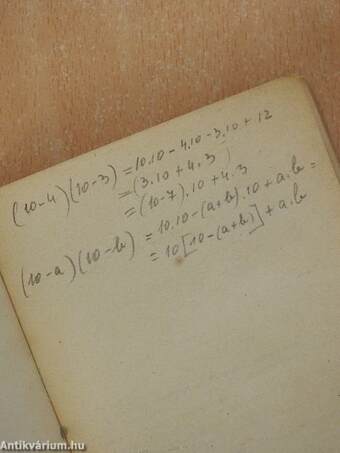 (10-4)(10-3) = 10.10 - 4.10 - 3.10 + 12
= (3.10 + 4.3)
= (10-7).10 + 4.3
(10-a)(10-b) = 10.10 - (a+b).10 + a.b =
= 10[10-(a+b)] + a.b
Antikvárium.hu